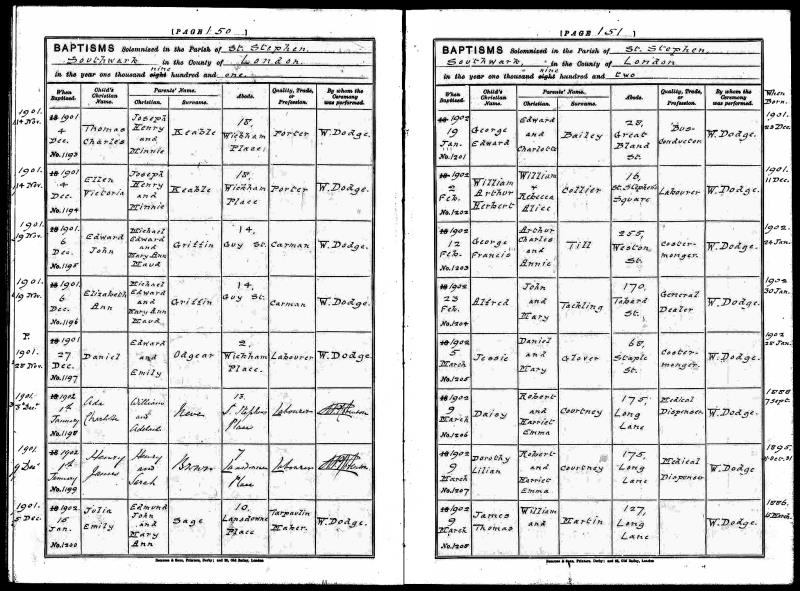 [PAGE 150
BAPTISMS Solemnized in the Parish of St. Stephen,
Southwark in the County of London
nine
in the year one thousand eight hundred and one.
When Baptized. Child's Christian Name. Parents' Name. Christian. Surname. Abode. Quality, Trade, or Profession. By whom the Ceremony was performed.
1901. 14 Nov. 18 1901 4 Dec. No. 1193 Thomas Charles Joseph Henry and Minnie Keable 18, Wickham Place; Porter W. Dodge.
1901. 14 Nov. 18 1901. 4 Dec. No. 1194 Ellen Victoria Joseph Henry and Minnie Keable 18, Wickham Place Porter W. Dodge.
1901. 19 Nov. 18 1901. 6 Dec. No. 1195 Edward John Michael Edward and Mary Ann Maud Griffin 14, Guy St. Carman W. Dodge.
1901. 19 Nov. 18 1901. 6 Dec. No. 1196 Elizabeth Ann Michael Edward and Mary Ann Maud Griffin 14, Guy St. Carman W. Dodge.
P. 1901. 28 Nov. 18 1901 27 Dec. No. 1197 Daniel Edward and Emily Odgear 2, Wickham Place. Labourer W. Dodge.
1901. Dec. 18 1902 1st January No. 1198 Ada Charlotte William and Adelaide 13. St. Stephens Place Labourer
1901. 9 Dec. 18 1902 1st January No. 1199 Henry James Henry and Sarah Brown 7 Lansdowne Place Labourer
1901. 5 Dec. 18 1902 15 Jan. No. 1200 Julia Emily Edmund John and Mary Ann Sage 10, Lansdowne Place Tarpaulin Maker. W. Dodge.
Bemrose & Sons, Printers, Derby; and 23, Old Bailey, London
[PAGE 151]
BAPTISMS Solemnized in the Parish of St. Stephen,
Southwark, in the County of London
nine
in the year one thousand eight hundred and two
When Baptized. Child's Christian Name. Parents' Name. Christian. Surname. Abode. Quality, Trade, or Profession. By whom the Ceremony was performed. When Born.
18 1902 19 Jan. No. 1201 George Edward Edward and Charlotte Bailey 28, Great Bland St. Bus-Conductor W. Dodge. 1901. 23 Dec.
18 1902 2 Feb. No. 1202 William Arthur Herbert William & Rebecca Alice Collier 16, St. Stephen's Square Labourer W. Dodge. 1901. 11 Dec.
18 1902 12 Feb. No. 1203 George Francis Arthur Charles and Annie Till 255, Weston St. Coster-monger. W. Dodge. 1902. 24 Jan.
18 1902 23 Feb. No. 1204 Alfred John and Mary Tackling 170, Tabard St. General Dealer W. Dodge. 1902 30 Jan.
18 1902 5 March No. 1205 Jessie Daniel and Mary Glover 68, Staple St. Coster-monger. W. Dodge. 1902 28 Jan.
18 1902 9 March No. 1206 Daisy Robert and Harriet Emma Courtney 175, Long Lane Medical Dispenser W. Dodge. 1888 7 Sept.
18 1902 9 March No. 1207 Dorothy Lilian Robert and Harriet Emma Courtney 175, Long Lane Medical Dispenser W. Dodge 1895. Dec. 31
18 1902 9 March No. 1208 James Thomas William and Martin 127, Long Lane W. Dodge. 1886. March.
Bemrose & Sons, Printers, Derby; and 23, Old Bailey, London